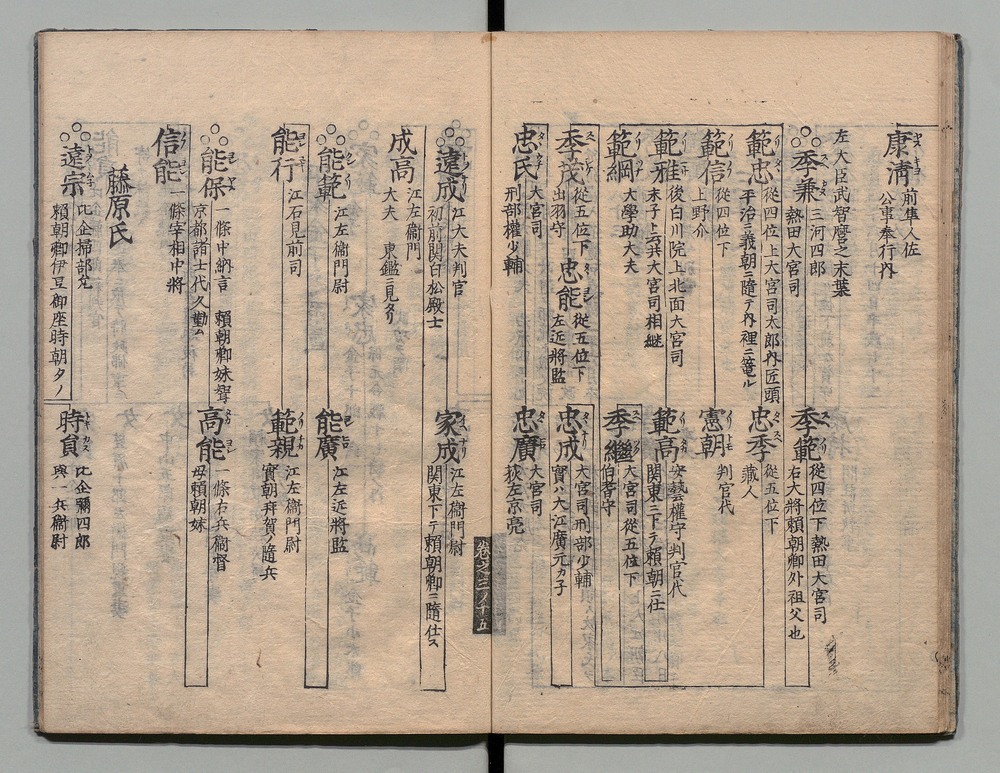 康清 前隼人佐
公事奉行內
左大臣武智麿之末葉
季兼 三河四郎
熱田大宮司
季範 從四位下熱田大宮司
右大將賴朝卿外祖父也
範忠 從四位上大宮司太郎內匠頭
平治ニ義朝ニ隨テ內裡ニ篭ル
忠季 從五位下
藏人
範信 從四位下
上野介
憲朝 判官代
範雅 後白川院上北面大宮司
末子
大宮司相継
範高 安藝權守判官代
関東ニ下テ賴朝ニ仕
範綱 大學助大夫
季繼 大宮司從五位下
伯耆守
季茂 從五位下
出羽守
忠能 從五位下
左近將監
忠成 大宮司刑部少輔
實ハ大江廣元カ子
忠氏 大宮司
刑部權少輔
忠廣 大宮司
左京亮
卷之三ノ十五
遠成 江大夫判官
初前関白松殿士
家成 江左衞門尉
関東下テ賴朝卿ニ隨仕ス
成高 江左衞門
大夫 東鑑ニ見タリ
能範 江左衞門尉
能廣 江左近將監
能行 江石見前司
範親 江左衞門尉
實朝拜賀ノ隨兵
能保 一條中納言 賴朝卿妹聟
京都諸士代久勤ム
高能 一條右兵衞督
母賴朝妹
信能 一條宰相中將
藤原氏
遠宗 比企掃部允
賴朝卿伊豆御座時朝夕ノ
時員 比企彌四郎
與一兵衞尉